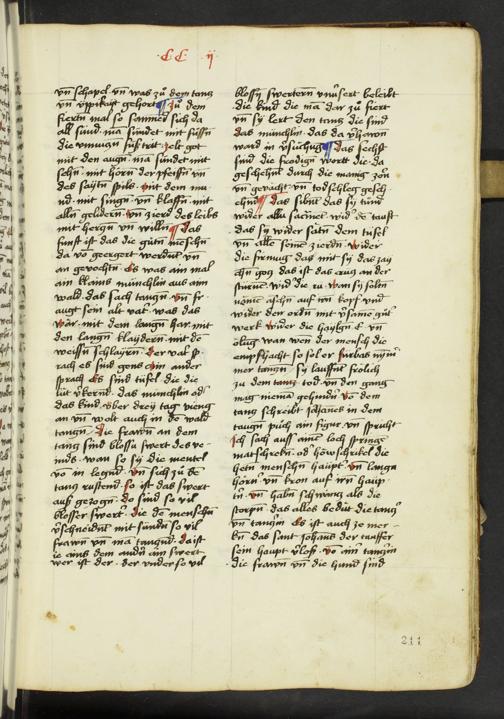 CC ij
vn̄ schapel vn̄ was zů dem tantz
vn̄ vppikait gehort ¶ zů dem
fierten mal so samnet sich da
all sünd mā sündet mit füssn̄
mit den augn̄ mā sündet mit
sehn̄ mit hörn der pfeiffn̄ vn̄
des saÿtn̄ spils mit dem mu
nd mit singn̄ vn̄ klaffn̄ mit
allen gelidern vn̄ zierd des leibs
mit hertzn̄ vn̄ willn̄ ¶ Das
fünft ist das die gůtn̄ mēschn̄
da vō geergert werdent vn̄
an gevochtn̄ Es was ain mal
ain klains münchlin auß ainem
wald das sach tantzn̄ vn̄ fr
augt sein alt vat was das
wār mit dem langn̄ har mit
den langn̄ klaÿdern mit dē
weissn̄ schlaÿren der vat sp
rach es sind gens ain ander
sprach Es sind tüfel die die
lüt v̄kernd das münchlin od
das kind über dreÿ tag vieng
an vn̄ wolt auch in de wald
tantzn̄ Die frawn̄ an dem
tantz sind blossu swert des ve
inds wan so sÿ die mentel
vō in legnd vn̄ sich zů dē
tantz rustend so ist das swert
auß gezogn̄ do sind so vil
blosser swert die die menschn̄
v̄schneidnt mit sündn̄ so vil
frawn̄ vn̄ mā tantznd da ist
ie ains dem andn̄ ain swert
wer ist der der vnder so vil
blossn̄ swertern vn̄usert beleibt
die kind die mā dar zů fiert
vn̄ sÿ lert den tantz die sind
das münchlin das da v̄harwn̄
ward in v̄suchūg ¶ Das sechst
sind die frödign̄ wortt die da
geschehn̄t durch die mānig zorn
vn̄ gevācht vn̄ todschleg gesch
ehn̄t ¶ Das sibnt das sÿ tünd
wider allu sacmēt wid de tauft
das sÿ wider satn̄ dem tüfel
vn̄ alle seine zierdn̄ wider
die firmug das mit sÿ das zaÿ
chn̄ gotz das ist das crütz an der
wider den ordn̄ mit v̄samē gůt
werk wider die haÿlgn̄ ē vn̄
ölug wan wen der mensch die
empfÿacht so sol er fürbas nÿm
mer tantzn̄ sÿ lauffnt frölich
zu dem tantz tod vn̄ den gang
mag niema gehindn̄ Vō dem
tantz schreibt Johānes in dem
taugn̄ půch ain figur vn̄ spricht
ich sach auff ainē loch spring
hetn menschn̄ haupt vn̄ langu
hörn vn̄ kron auf irn haup
tn̄ vn̄ habn̄ schwäntz als die
storpn̄ das alles bedüt die tantz
vn̄ tantzin Es ist auch ze mer
kn̄ das sant Johans der tauffer
sein haupt v̄loß vō ain tantzin
die frawn̄ vn̄ die hund sind
211